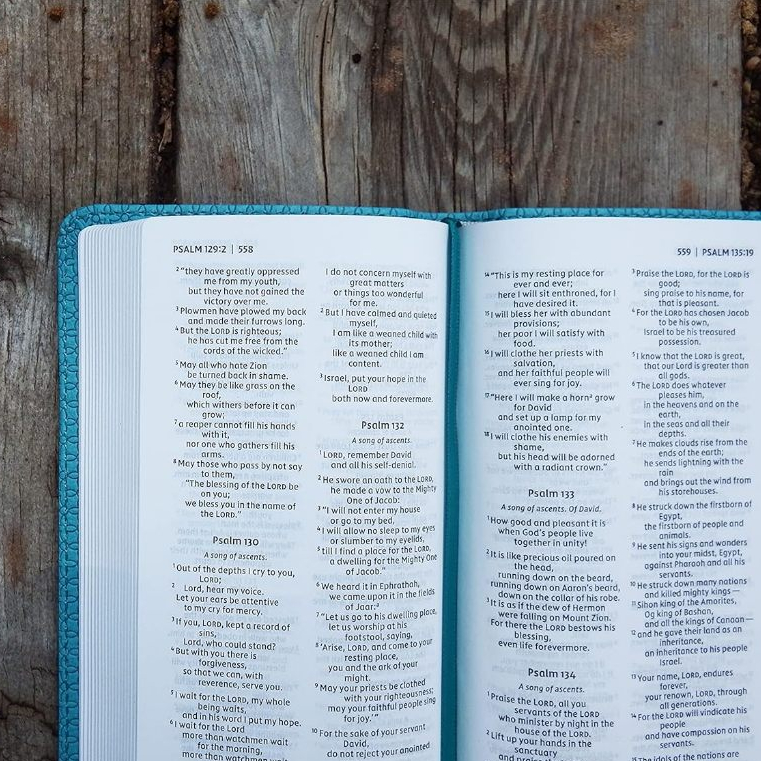 PSALM 129:2 | 558
2 "they have greatly oppressed
me from my youth,
but they have not gained the
victory over me.
3 Plowmen have plowed my back
and made their furrows long.
4 But the LORD is righteous;
he has cut me free from the
cords of the wicked."
5 May all who hate Zion
be turned back in shame.
6 May they be like grass on the
roof,
which withers before it can
grow;
7 a reaper cannot fill his hands
with it,
nor one who gathers fill his
arms.
8 May those who pass by not say
to them,
"The blessing of the LORD be
on you;
we bless you in the name of
the LORD."
Psalm 130
A song of ascents.
1 Out of the depths I cry to you,
LORD;
2 Lord, hear my voice.
Let your ears be attentive
to my cry for mercy.
3 If you, LORD, kept a record of
sins,
Lord, who could stand?
4 But with you there is
forgiveness,
so that we can, with
reverence, serve you.
5 I wait for the LORD, my whole
being waits,
and in his word I put my hope.
6 I wait for the Lord
more than watchmen wait
for the morning,
more than watchmen wait
I do not concern myself with
great matters
or things too wonderful
for me.
2 But I have calmed and quieted
myself,
I am like a weaned child with
its mother;
like a weaned child I am
content.
3 Israel, put your hope in the
LORD
both now and forevermore.
Psalm 132
A song of ascents.
1 LORD, remember David
and all his self-denial.
2 He swore an oath to the LORD,
he made a vow to the Mighty
One of Jacob:
3 "I will not enter my house
or go to my bed,
4 I will allow no sleep to my eyes
or slumber to my eyelids,
5 till I find a place for the LORD,
a dwelling for the Mighty One
of Jacob."
6 We heard it in Ephrathah,
we came upon it in the fields
of Jaar:a
7 "Let us go to his dwelling place,
let us worship at his
footstool, saying,
8 'Arise, LORD, and come to your
resting place,
you and the ark of your
might.
9 May your priests be clothed
with your righteousness;
may your faithful people sing
for joy.'"
10 For the sake of your servant
David,
do not reject your anointed
559 | PSALM 135:19
14 "This is my resting place for
ever and ever;
here I will sit enthroned, for I
have desired it.
15 I will bless her with abundant
provisions;
her poor I will satisfy with
food.
16 I will clothe her priests with
salvation,
and her faithful people will
ever sing for joy.
17 "Here I will make a horna grow
for David
and set up a lamp for my
anointed one.
18 I will clothe his enemies with
shame,
but his head will be adorned
with a radiant crown."
Psalm 133
A song of ascents. Of David.
1 How good and pleasant it is
when God's people live
together in unity!
2 It is like precious oil poured on
the head,
running down on the beard,
running down on Aaron's beard,
down on the collar of his robe.
3 It is as if the dew of Hermon
were falling on Mount Zion.
For there the LORD bestows his
blessing,
even life forevermore.
Psalm 134
A song of ascents.
1 Praise the LORD, all you
servants of the LORD
who minister by night in the
house of the LORD.
2 Lift up your hands in the
sanctuary
and praise
3 Praise the LORD, for the LORD is
good;
sing praise to his name, for
that is pleasant.
4 For the LORD has chosen Jacob
to be his own,
Israel to be his treasured
possession.
5 I know that the LORD is great,
that our Lord is greater than
all gods.
6 The LORD does whatever
pleases him,
in the heavens and on the
earth,
in the seas and all their
depths.
7 He makes clouds rise from the
ends of the earth;
he sends lightning with the
rain
and brings out the wind from
his storehouses.
8 He struck down the firstborn of
Egypt,
the firstborn of people and
animals.
9 He sent his signs and wonders
into your midst, Egypt,
against Pharaoh and all his
servants.
10 He struck down many nations
and killed mighty kings—
11 Sihon king of the Amorites,
Og king of Bashan,
and all the kings of Canaan—
12 and he gave their land as an
inheritance,
an inheritance to his people
Israel.
13 Your name, LORD, endures
forever,
your renown, LORD, through
all generations.
14 For the LORD will vindicate his
people
and have compassion on his
servants.
15 The idols of the nations are